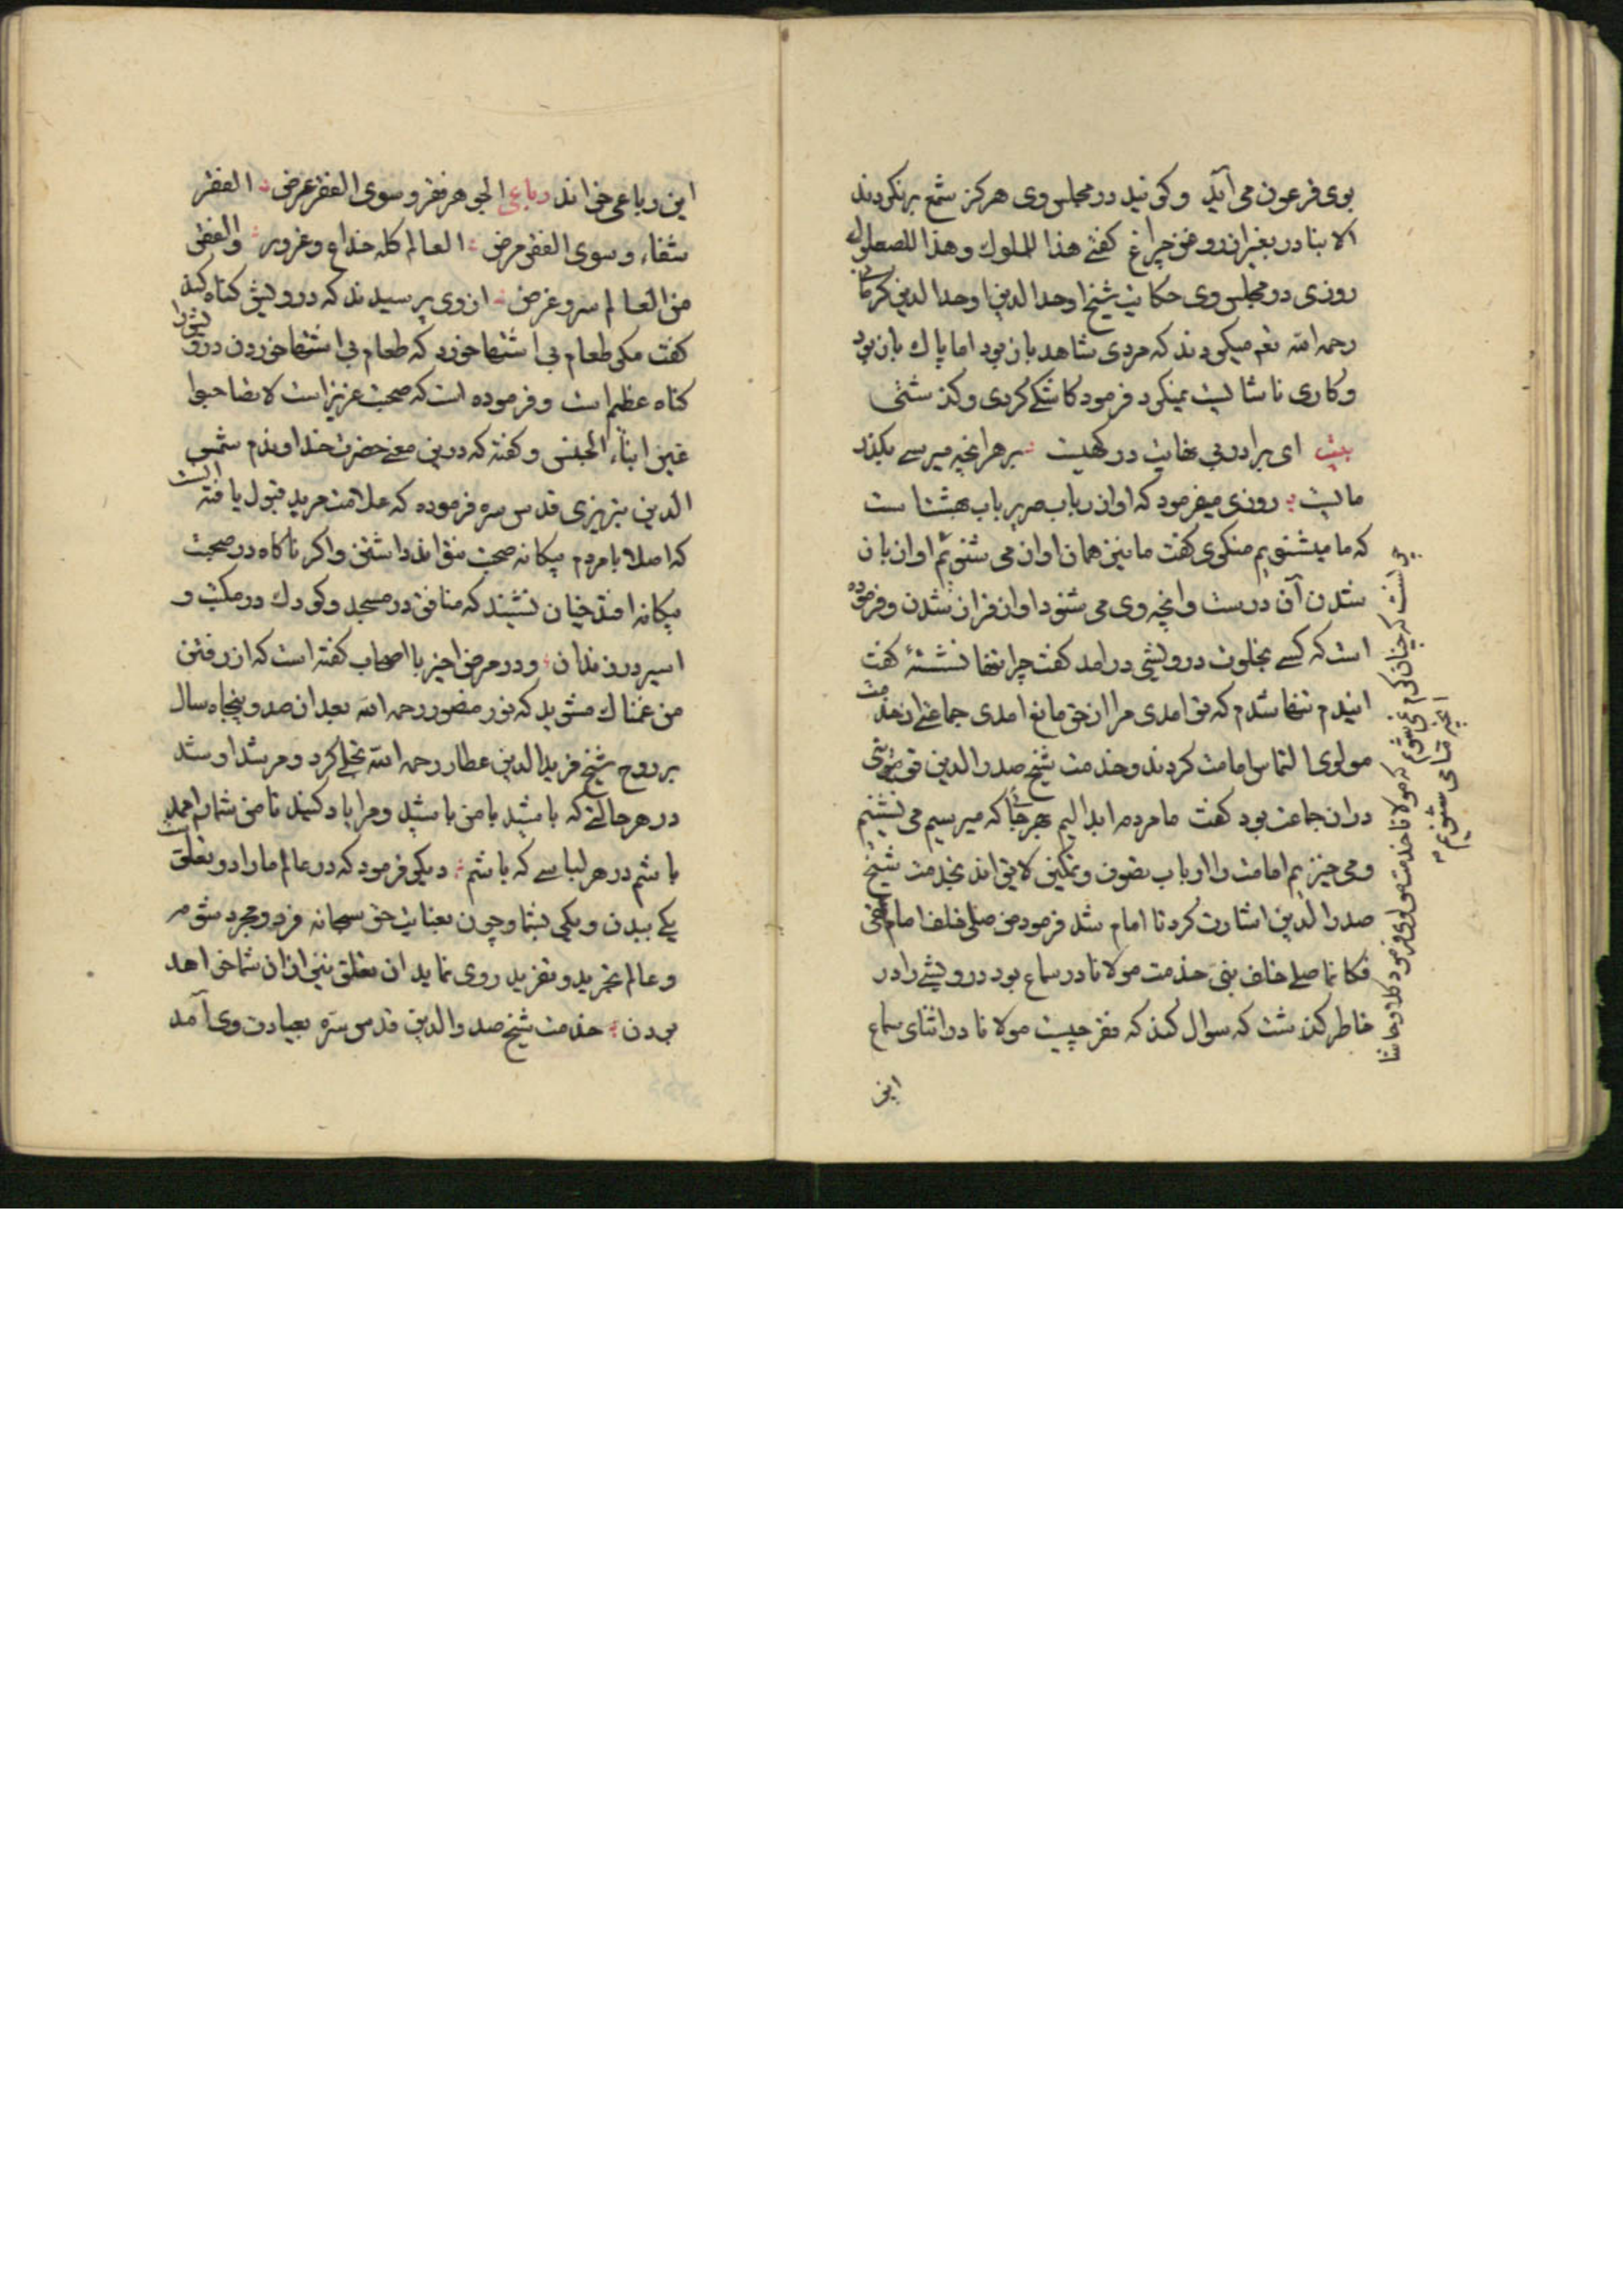 بوی فرعون می آید و کویند در مجلس وی هرکز شمع برنکردند
الا بنادر بغیر از روغن چراغ کفتی هذا للملوك وهذا للصعلوك
روزی در مجلس وی حکایت شیخ اوحد الدین اوحد الدین کرمانی
رحمه الله تعم میکردند که مردی شاهد باز بود اما پاك باز بود
و کاری ناشایست نمیکرد فرمود کاشکی کردی وکذشتی
بیت ای برادر بی نهایت درکهیست بر هرانچه میرسی بکذر
مایست روزی میفرمود که اواز رباب صریر باب بهشتست
که ما میشنویم منکری کفت ما نیز همان اواز می شنویم
اواز باز
شدن آن درست وانچه وی می شنود اواز فراز شدن وفرموده
است که کسی بخلوت درویشی درامد کفت چرا تنها نشستهٔ کفت
ایندم تنها شدم که تو امدی مرا از حق مانع امدی جماعتی از خدمت
مولوی التماس امامت کردند وخدمت شیخ صدر الدین قونوی
دران جماعت بود کفت ما مردم ابدالیم بهر جا که میرسیم می نشینیم
ومی خیزیم امامت را ارباب تصوف وتمکین لایق اند بخدمت شیخ
صدر الدین اشارت کرد تا امام شد فرمود من صلی خلف امام تقی
فکانما صلی خلف نبی خدمت مولانا در سماع بود درویشی را در
خاطر کذشت که سوال کند که فقر چیست مولانا در اثنای سماع
این
که مولانا خدمت مولوی فرمود کلا وحاشا
انچه تا می شنویم
این رباعی خواند رباعی الجوهر فقر وسوی الفقر عرض الفقر
شفاء وسوی الفقر مرض العالم کله خداع وغرور والفقر
من العالم سر وغرض از وی پرسیدند که درویش کناه کند
کفت مکر طعام بی اشتها خورد که طعام بی اشتها خوردن درویش را
کناه عظیم است وفرموده است که صحبت عزیز است لا تصاحبوا
غیر ابناء الجنس وکفته که درین معنی حضرت خداوندم شمس
الدین تبریزی قدس سره فرموده که علامت مرید قبول یافته انست
که اصلا با مردم بیکانه صحبت نتواند داشتن واکر ناکاه در صحبت
بیکانه افتد چنان نشیند که منافق در مسجد وکودك در مکتب و
اسیر در زندان ودر مرض اخیر با اصحاب کفته است که از رفتن
من غمناك مشوید که نور منصور رحمه الله بعد از صد وپنجاه سال
بر روح شیخ فرید الدین عطار رحمه الله تجلی کرد ومرشد او شد
در هر حالتی که باشید با من باشید ومرا یاد کنید تا من شمارا ممد
باشم در هر لباسی که باشم دیکر فرمود که در عالم مارا دو تعلق است
یکی ببدن ویکی بشما وچون بعنایت حق سبحانه فرد ومجرد شوم
وعالم تجرید وتفرید روی نماید ان تعلق نیز ازان شما خواهد
بودن خدمت شیخ صدر الدین قدس سره بعیادت وی آمد